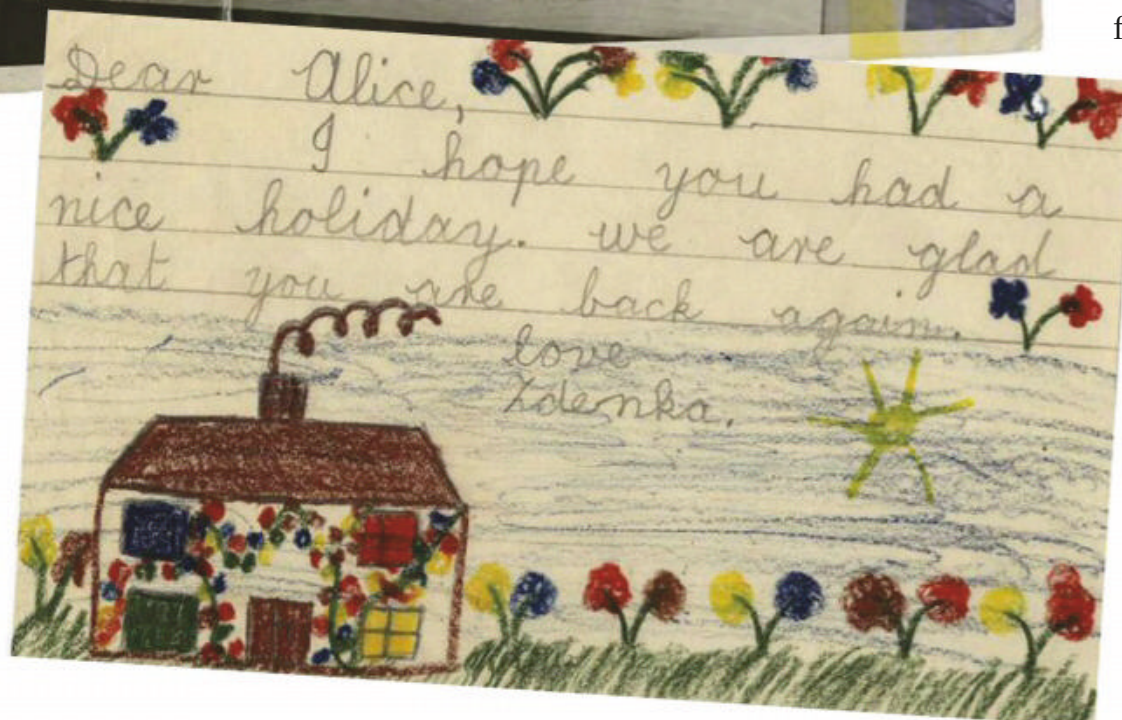 f
Dear Alice,
I hope you had a
nice holiday. we are glad
that you are back again.
love
Zdenka.